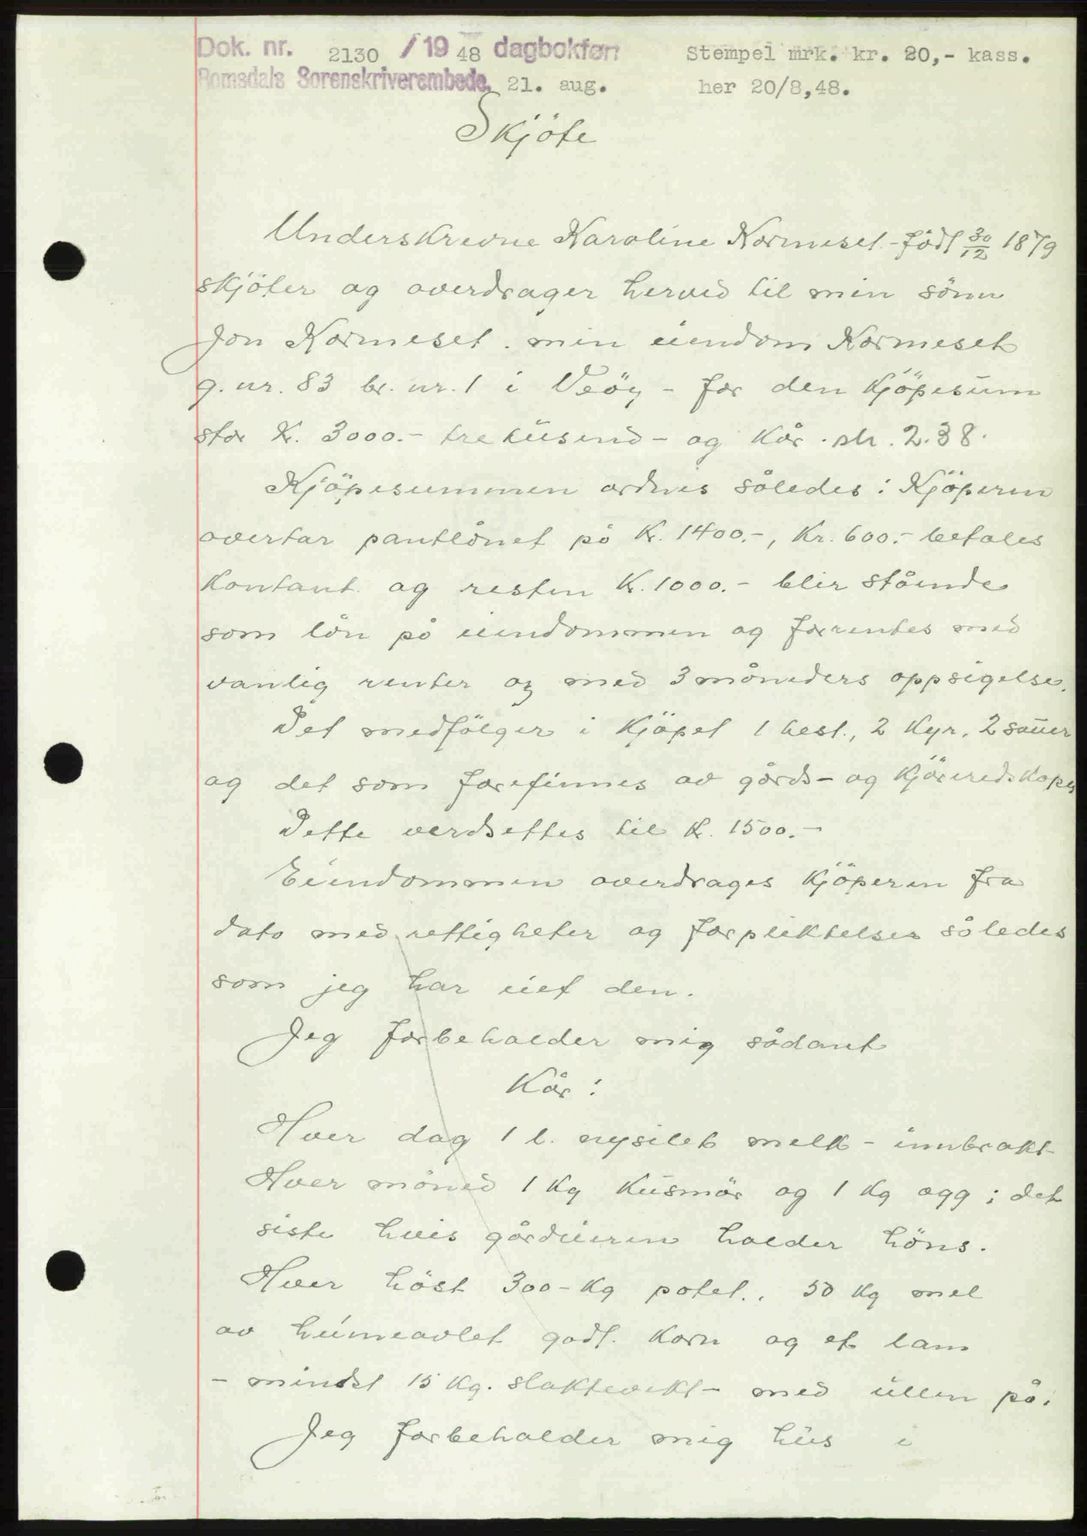 Dok. nr. 2130 / 19 48 dagbokført Stempel mrk. kr. 20,- kass.
Romsdals Sorenskriverembede, 21. aug. her 20/8,48.
Skjöte
Underskrevne Karoline Kormeset - födt 30/12 1879
skjöter og overdrager herved til min sönn
Jon Kormeset. min eiendom Kormeset
g. nr. 83 br. nr. 1 i Veöy - for den kjöpesum
stor Kr. 3000.- tretusend - og kår. 2.38.
Kjöpesummen ordnes således: Kjöperen
overtar pantlånet på Kr. 1400.-, Kr. 600.- betales
kontant og resten Kr. 1000.- blir stående
som lån på eiendommen og forrentes med
vanlig renter og med 3 måneders oppsigelse.
Det medfölger i kjöpet 1 hest., 2 kyr, 2 sauer
og det som forefinnes av gårds- og kjöreredskaper
Dette verdsettes til Kr. 1500.-
Eiendommen overdrages kjöperen fra
dato med rettigheter og forpliktelser således
som jeg har eiet den.
Jeg forbeholder mig sådant
Kår:
Hver dag 1 l. nysilet melk - innbrakt
Hver måned 1 kg kusmör og 1 kg egg; det
siste hvis gårdeieren holder höns.
Hver höst 300 - kg potet., 50 kg mel
av heimeavlet godt. korn og et lam
- mindst 15 kg. slaktevekt - med ullen på.
Jeg forbeholder mig hus i